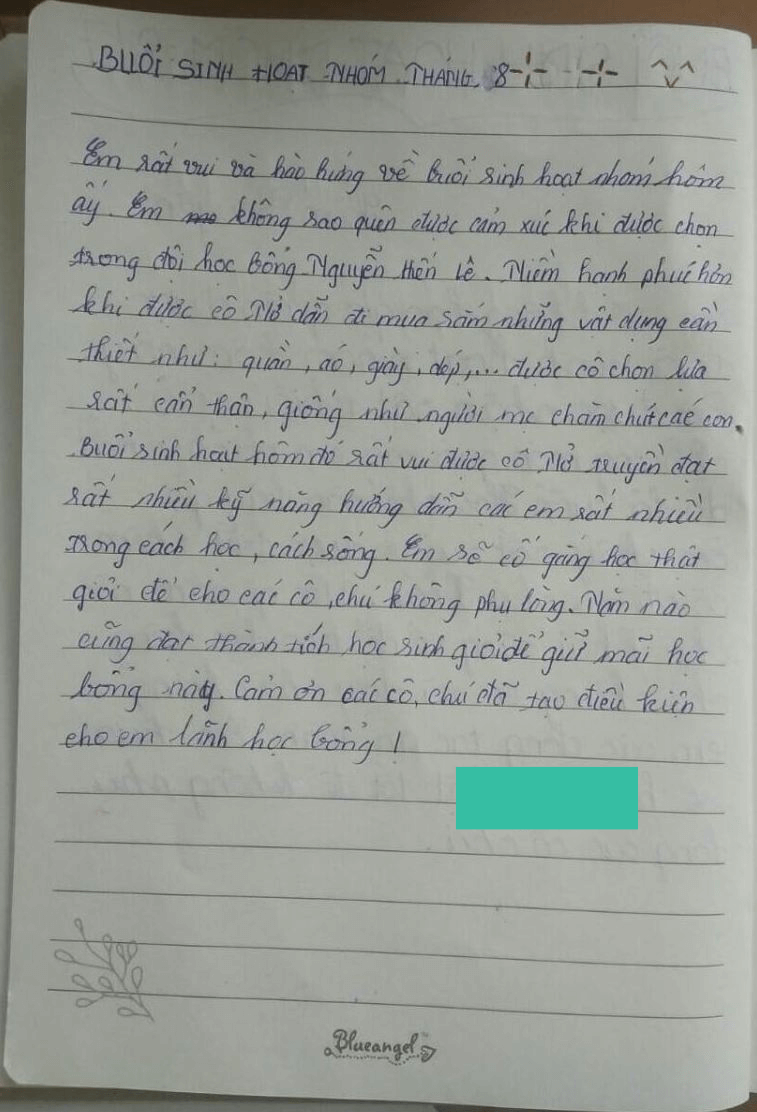 BUỔI SINH HOẠT NHÓM THÁNG 8
Em rất vui và hào hứng về buổi sinh hoạt nhóm hôm
ấy. Em không sao quên được cảm xúc khi được chọn
trong đội học bổng Nguyễn Hiến Lê. Niềm hạnh phúc hơn
khi được cô Mở dẫn đi mua sắm những vật dụng cần
thiết như: quần, áo, giày, dép,... được cô chọn lựa
rất cẩn thận, giống như người mẹ chăm chút các con.
Buổi sinh hoạt hôm đó rất vui được cô Mở truyền đạt
rất nhiều kỹ năng hướng dẫn các em rất nhiều
trong cách học, cách sống. Em sẽ cố gắng học thật
giỏi để cho các cô, chú không phụ lòng. Năm nào
cũng đạt thành tích học sinh giỏi để giữ mãi học
bổng này. Cảm ơn các cô, chú đã tạo điều kiện
cho em lãnh học bổng!
Blueangel